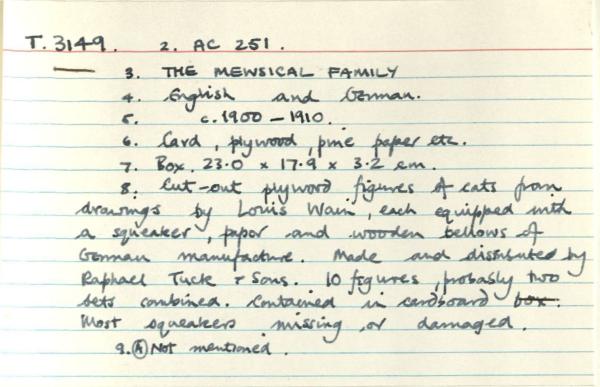 T. 3149. 2. AC 251.
3. THE MEWSICAL FAMILY
4. English and German.
5. c. 1900 – 1910.
6. Card, plywood, pine paper etc.
7. Box. 23.0 x 17.9 x 3.2 cm.
8. Cut-out plywood figures of cats from
drawings by Louis Wain, each equipped with
a squeaker, paper and wooden bellows of
German manufacture. Made and distributed by
Raphael Tuck & Sons. 10 figures, probably two
sets combined. Contained in cardboard box.
Most squeakers missing or damaged.
9. A Not mentioned.